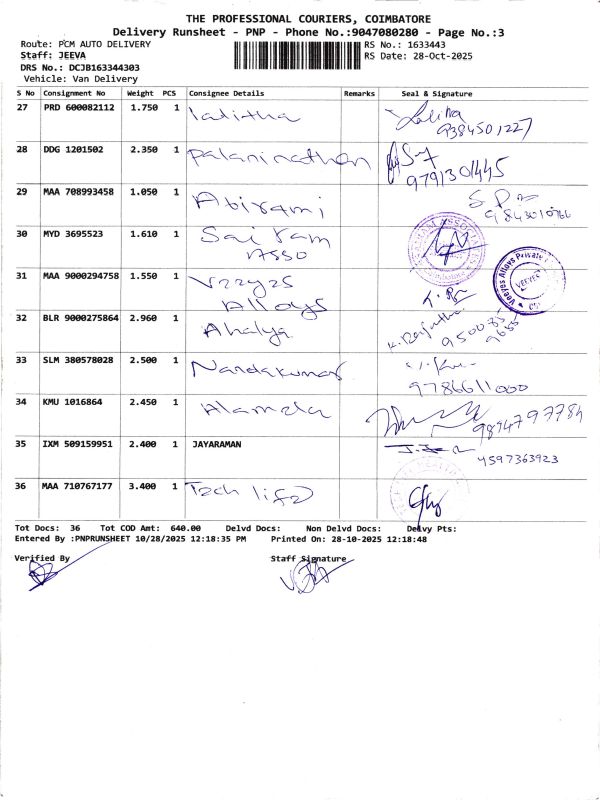 THE PROFESSIONAL COURIERS, COIMBATORE
Delivery Runsheet - PNP - Phone No.:9047080280 - Page No.:3
Route: PCM AUTO DELIVERY RS No.: 1633443
Staff: JEEVA RS Date: 28-Oct-2025
DRS No.: DCJB163344303
Vehicle: Van Delivery
S No Consignment No Weight PCS Consignee Details Remarks Seal & Signature
27 PRD 600082112 1.750 1 lalitha Lalitha
9384501227
28 DDG 1201502 2.350 1 Palaninathan
9791301445
29 MAA 708993458 1.050 1 Abirami
9843010766
30 MYD 3695523 1.610 1 Sai ram
Asso
31 MAA 9000294758 1.550 1 Veeyes
Alloys
Veeyes Alloys Private
VEEYES
32 BLR 9000275864 2.960 1 Ahalya
95008
33 SLM 380578028 2.500 1 Nandakumar
9786611000
34 KMU 1016864 2.450 1 Alamelu
9894797784
35 IXM 509159951 2.400 1 JAYARAMAN
4597363923
36 MAA 710767177 3.400 1 Tech life
Tot Docs: 36 Tot COD Amt: 640.00 Delvd Docs: Non Delvd Docs: Delvy Pts:
Entered By :PNPRUNSHEET 10/28/2025 12:18:35 PM Printed On: 28-10-2025 12:18:48
Verified By Staff Signature